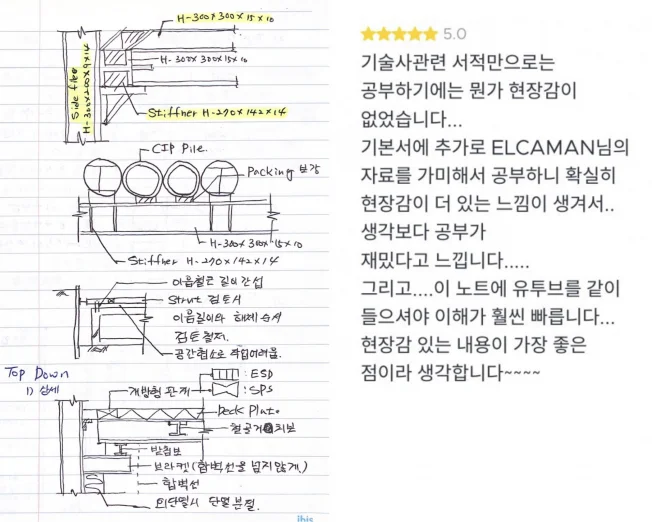 H-300×300×15×10
H-300×300×15×10
Side
H-300×200×9×14
Stiffner H-270×142×14
CIP Pile.
Packing 보강
H-300×300×15×10
Stiffner H-270×142×14
이음철근 길이간섭
Strut 검토시
이음길이와 해체순서
검토철저.
공간협소로 작업어려움.
Top Down
1) 상세
개방형 판재
: ESD
: SPS
Deck Plate
철골거더보
받침보
브라켓(합벽선을 넘지않게.)
합벽선
외단열시 단열분절.
ibis
★★★★★ 5.0
기술사관련 서적만으로는
공부하기에는 뭔가 현장감이
없었습니다...
기본서에 추가로 ELCAMAN님의
자료를 가미해서 공부하니 확실히
현장감이 더 있는 느낌이 생겨서..
생각보다 공부가
재밌다고 느낍니다.....
그리고....이 노트에 유투브를 같이
들으셔야 이해가 훨씬 빠릅니다...
현장감 있는 내용이 가장 좋은
점이라 생각합니다~~~~